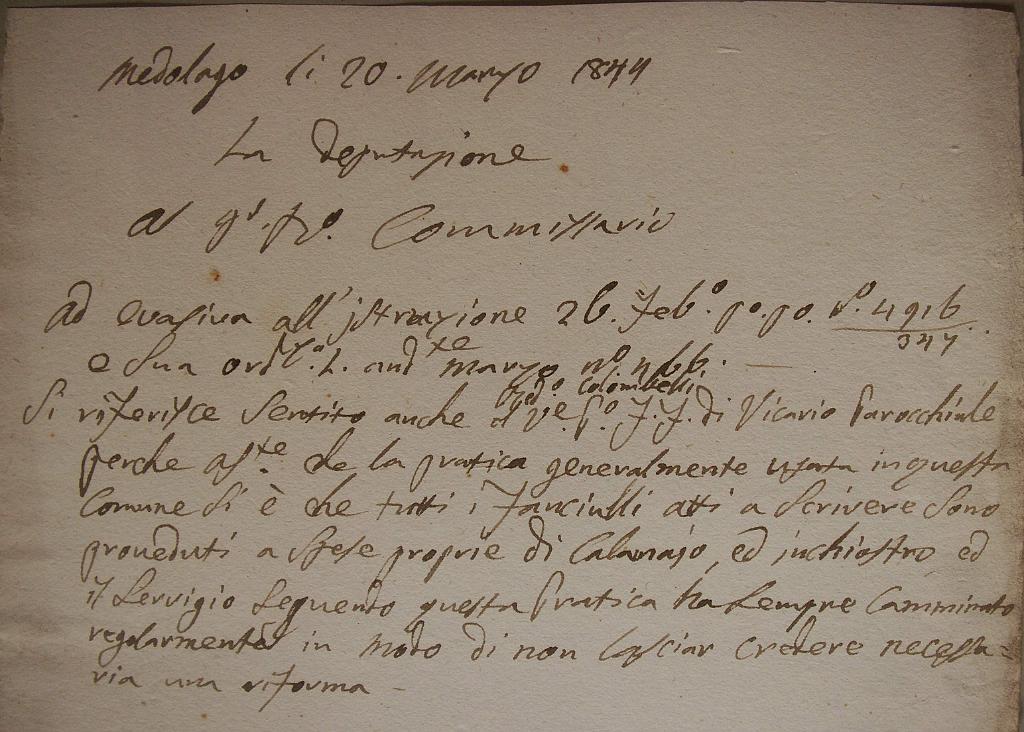 Medolago li 20. Marzo 1844
La Deputazione
al Commissario
Ad evasiva all'jstruzione 26. Feb.o po. po. N.o 4916/347
e Sua and.te Marzo N.o 466.
Colombelli
Si riferisce Sentito anche il F.F. di Vicario Parocchiale
perche che la pratica generalmente usata in questa
Comune Si è che tutti i fanciulli atti a Scrivere Sono
proveduti a Spese proprie di Calamajo, ed inchiostro, ed
il Servigio Seguendo questa Pratica ha Sempre Camminato
regolarmente in modo di non lasciar credere necessa=
ria una riforma -